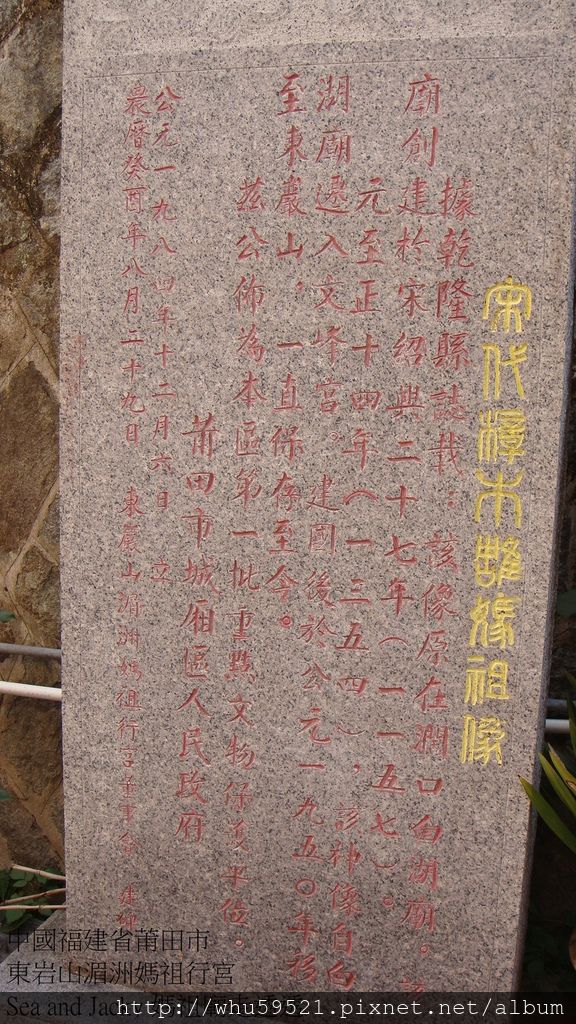 宋代樟木雕媽祖像
據乾隆縣誌載：該像原在濶口白湖廟。該
廟創建於宋紹興二十七年（一一五七）。
元至正十四年（一三五四），該神像自白
湖廟遷入文峰宮。建國後於公元一九五〇年移
至東巖山，一直保存至今。
茲公佈為本區第一批重點文物保護單位。
莆田市城廂區人民政府
公元一九八四年十二月六日 立
農曆癸酉年八月二十九日 東巖山湄洲媽祖行宮董事會
中國福建省莆田市
東岩山湄洲媽祖行宮
Sea and
http://whu59521.pixnet.net/album